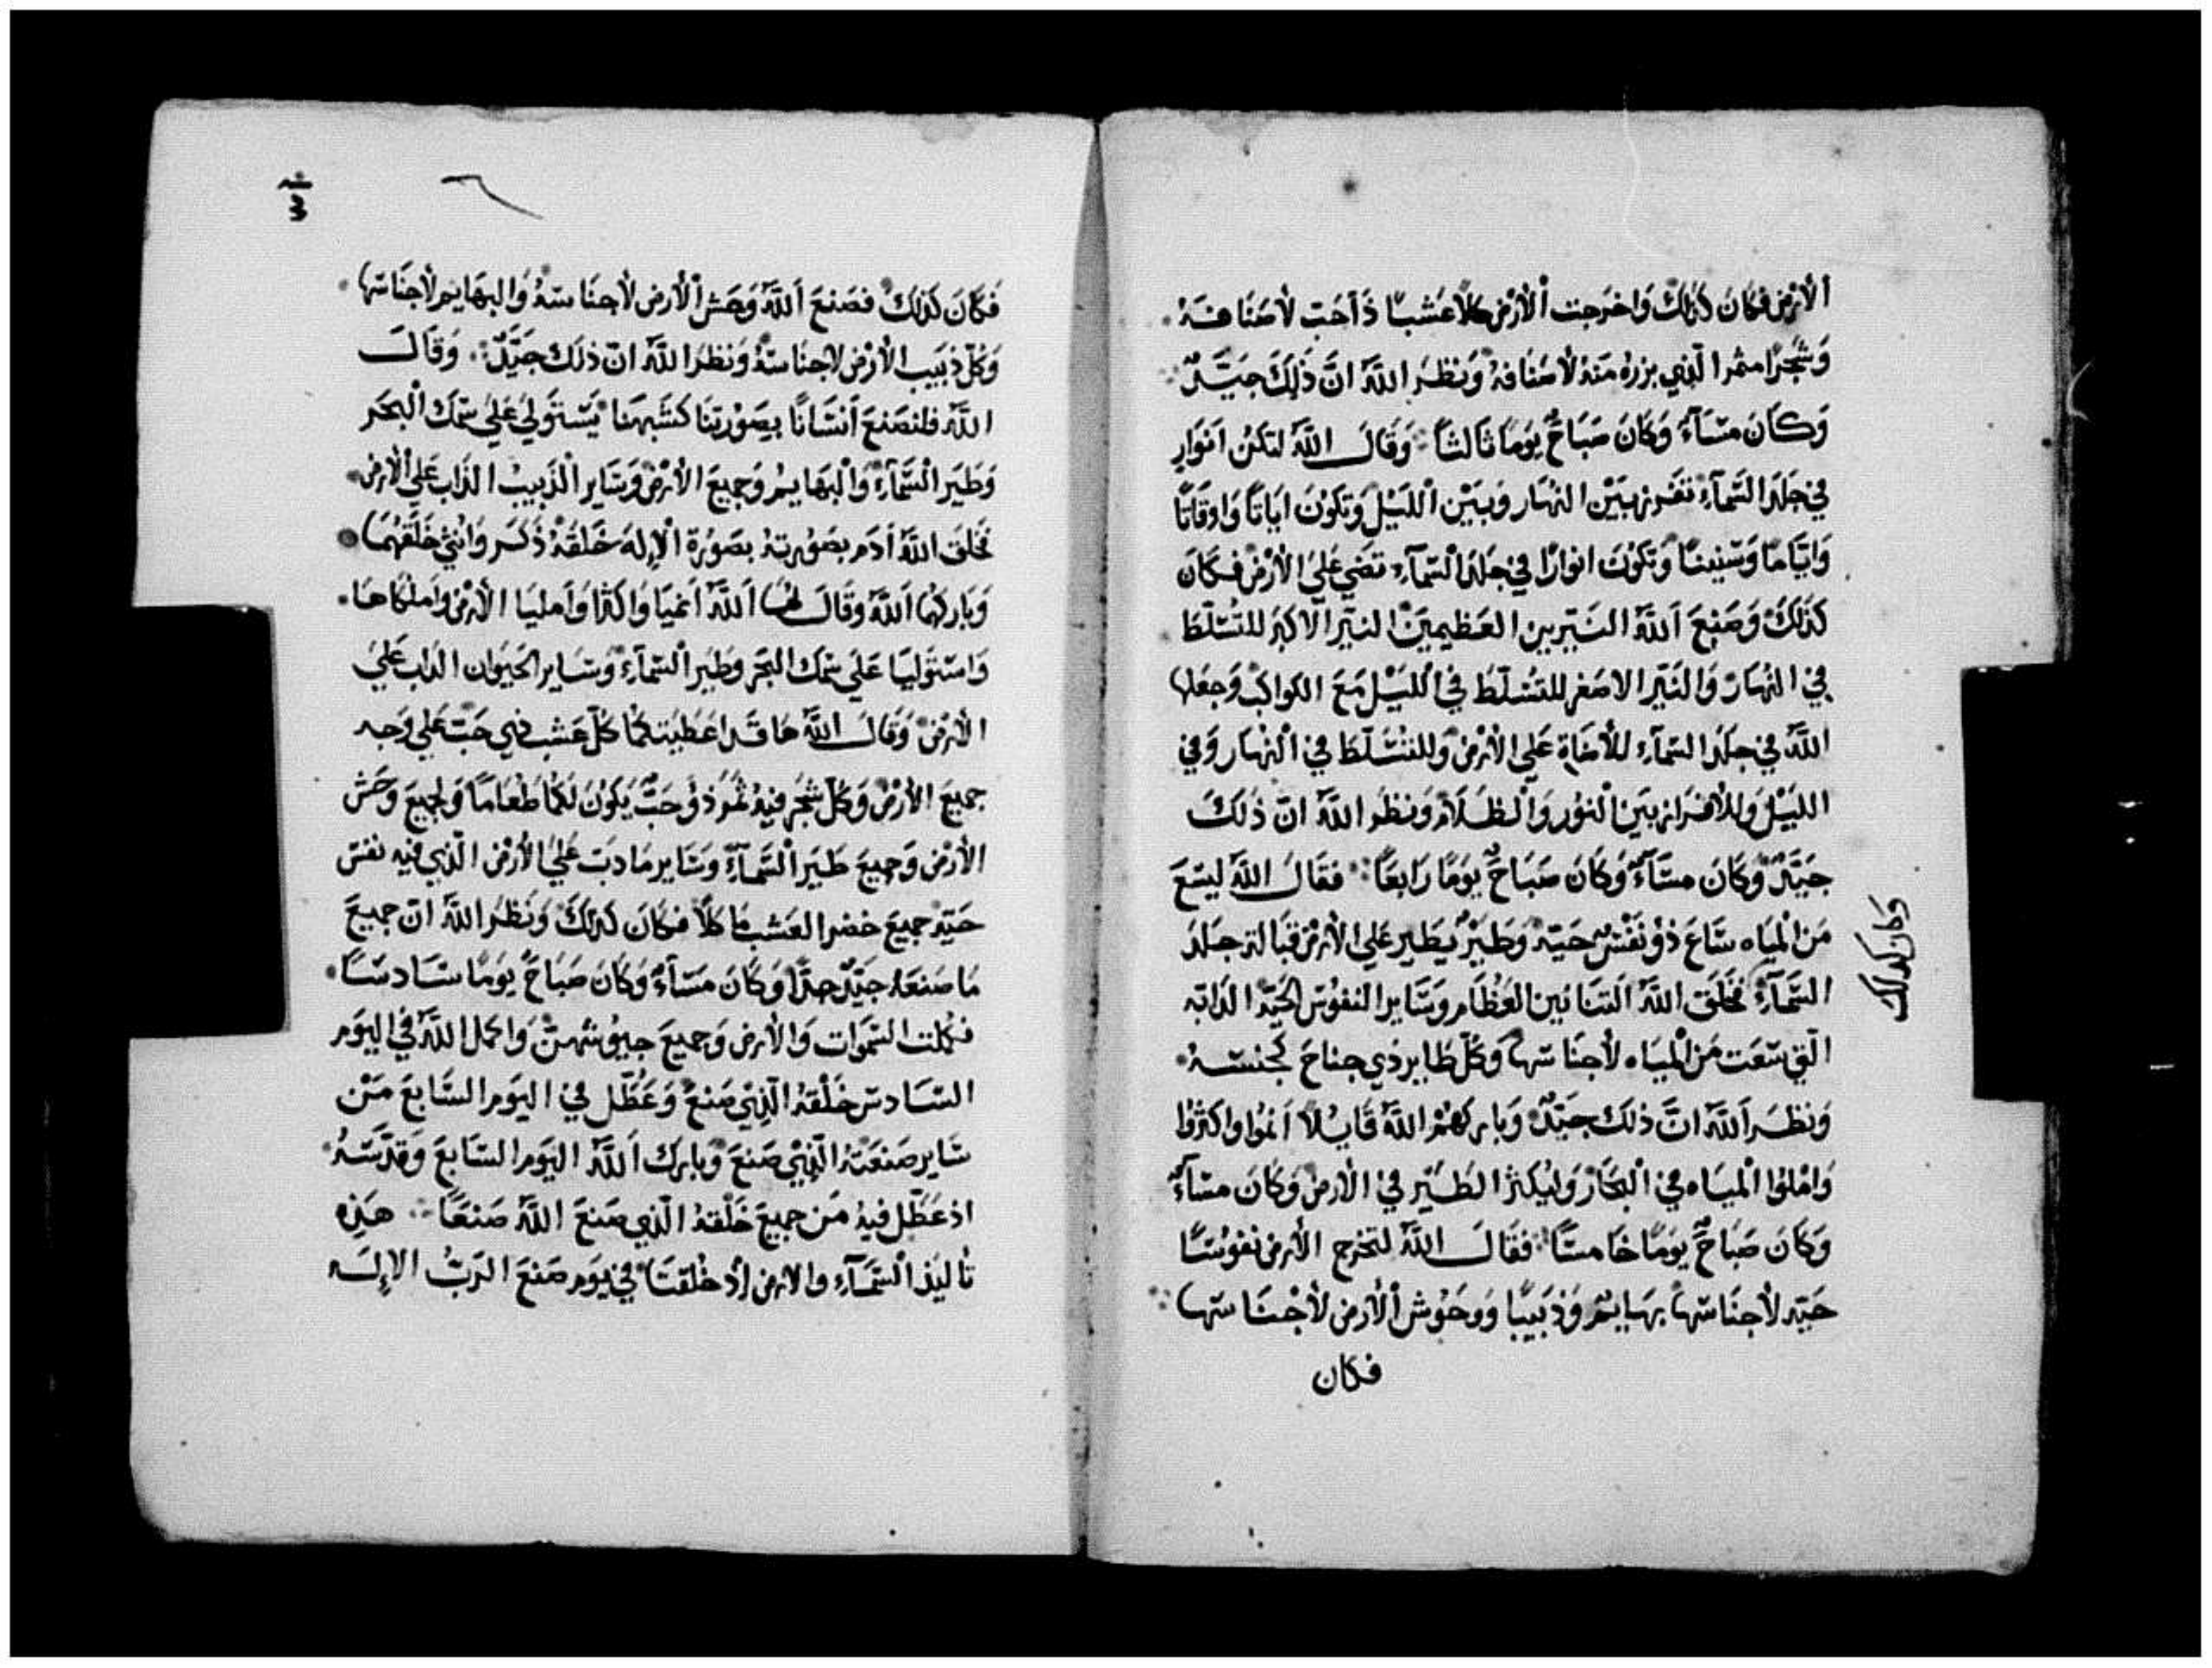 الأرض فكان كذلك واخرجت الأرض كلا عشبًا ذا حب لأصنافه
وشجرًا مثمرا الذي بزره منه لأصنافه ونظر الله ان ذلك جيد
وكان مسآء وكان صباح يومًا ثالثًا وقال الله لتكن انوار
في جلد السمآء تفرز بين النهار وبين الليل وتكون اياتًا واوقاتًا
واياما وسنينا وتكون انوارًا في جلد السمآء تضي علي الأرض فكان
كذلك وصنع الله النيرين العظيمين النير الاكبر للتسلط
في النهار والنير الاصغر للتسلط في الليل مع الكواكب وجعلها
الله في جلد السمآء للأضاة علي الأرض وللتسلط في النهار وفي
الليل وللأفراز بين النور والظلام ونظر الله ان ذلك
جيد وكان مسآء وكان صباح يومًا رابعًا فقال الله ليسع
من المياه ساع ذو نفس حيه وطير يطير علي الأرض قبالة جلد
السمآء فخلق الله التنانين العظام وساير النفوس الحية الدابه
التي سعت من المياه لأجناسها وكل طاير ذي جناح كجنسه
ونظر الله ان ذلك جيد وباركهم الله قايلا انموا واكثروا
واملوا المياه في البحار وليكثر الطير في الارض وكان مسآء
وكان صباح يومًا خامسًا فقال الله لتخرج الأرض نفوسًا
حيه لأجناسها بهايم وذبيبًا ووحوش الأرض لأجناسها
فكان
وكان كذلك
فكان كذلك فصنع الله وحش الأرض لأجناسه والبهايم لأجناسها
وكل ذبيب الأرض لاجناسه ونظر الله ان ذلك جيد وقال
الله فلنصنع انسانًا بصورتنا كشبهنا يستولي علي سمك البحر
وطير السمآء والبهايم وجميع الأرض وساير الذبيب الذاب علي الأرض
فخلق الله أدم بصورته بصورة الإله خلقه ذكر وانثي خلقهما
وباركهما الله وقال لهما الله انميا واكثرا وأمليا الأرض واملكاها
وامتوليا علي سمك البحر وطير السمآء وساير الحيوان الداب علي
الأرض وقال الله ها قد اعطيتكما كل عشب ذي حب علي وجه
جميع الأرض وكل شجر فيه ثمر ذو حب يكون لكما طعاما ولجميع وحش
الأرض وجميع طير السمآء وساير ما دب علي الأرض الذي فيه نفس
حيه جميع خضر العشب ماكلا فكان كذلك ونظر الله ان جميع
ما صنعه جيد جدا وكان مسآء وكان صباح يومًا سادسًا
فكملت السموات والأرض وجميع جيوشهن واكمل الله في اليوم
السادس خلقه الذي صنع وعطل في اليوم السابع من
ساير صنعته الذي صنع وبارك الله اليوم السابع وقدسه
اذ عطل فيه من جميع خلقه الذي صنع الله صنعًا هذه
تاليف السمآء والارض إذ خلقتا في يوم صنع الرب الإله